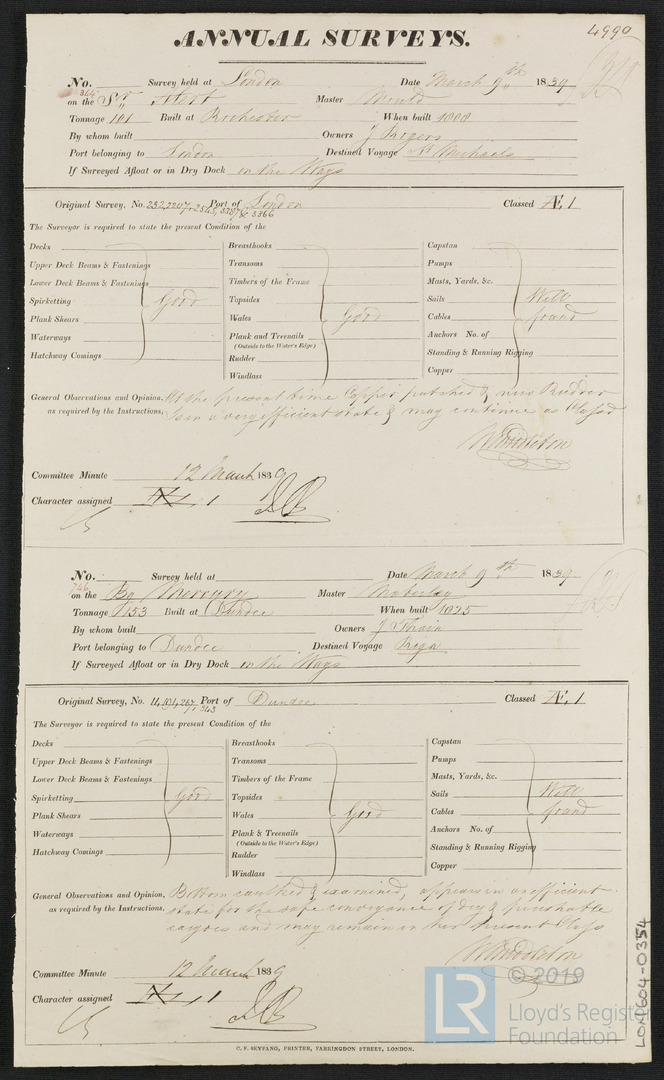 4990
ANNUAL SURVEYS.
No. 364 Survey held at London Date March 9th 1839
on the Sr. Master Mould
Tonnage 101 Built at Rochester When built
By whom built Owners J Rogers
Port belonging to London Destined Voyage St Michaels
If Surveyed Afloat or in Dry Dock in the Ways
Original Survey, No. 232, 2207, 2543, 3207 & 3366 Port of London Classed Æ 1
The Surveyor is required to state the present Condition of the
Decks Breasthooks Capstan
Upper Deck Beams & Fastenings Transoms Pumps
Lower Deck Beams & Fastenings Timbers of the Frame Masts, Yards, &c.
Spirketting Good Topsides Sails Well
Plank Shears Wales Good Cables found
Waterways Plank and Treenails Anchors No. of
(Outside to the Water's Edge)
Hatchway Comings Rudder Standing & Running Rigging
Windlass Copper
General Observations and Opinion, At the present time Copper patched & new Rudder
as required by the Instructions, is in a very efficient state & may continue as Classed
W Middleton
Committee Minute 12 March 1839
Character assigned Æ 1
No. 746 Survey held at Date March 9th 1839
on the Bg Mercury Master
Tonnage 153 Built at Dundee When built 1825
By whom built Owners J Thain
Port belonging to Dundee Destined Voyage Riga
If Surveyed Afloat or in Dry Dock in the Ways
Original Survey, No. 4, 104, 267, & 343 Port of Dundee Classed Æ 1
The Surveyor is required to state the present Condition of the
Decks Breasthooks Capstan
Upper Deck Beams & Fastenings Transoms Pumps
Lower Deck Beams & Fastenings Timbers of the Frame Masts, Yards, &c.
Spirketting Good Topsides Sails Well
Plank Shears Wales Good Cables found
Waterways Plank & Treenails Anchors No. of
(Outside to the Water's Edge)
Hatchway Comings Rudder Standing & Running Rigging
Windlass Copper
General Observations and Opinion, Bottom caulked & examined, appears in an efficient
as required by the Instructions, state for the safe conveyance of dry & perishable
cargoes and may remain in her present Class
W Middleton
Committee Minute 12 March 1839
Character assigned Æ 1
C. F. SEYFANG, PRINTER, FARRINGDON STREET, LONDON.
LON604-0354
LR
© 2019
Lloyd's Register
Foundation